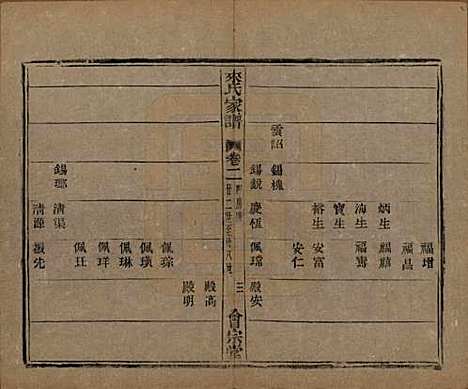 福增
福昌
炳生
福麟
福壽
寶生
裕生
安富
安仁
雲詔
錫槐
錫銳
慶恆
佩瑞
殿安
來氏家譜
卷二
廿二世至廿八世
三
會宗堂
殿高
殿明
佩琮
佩璜
佩琳
佩玨
錫瑯
清渠
清源
振先